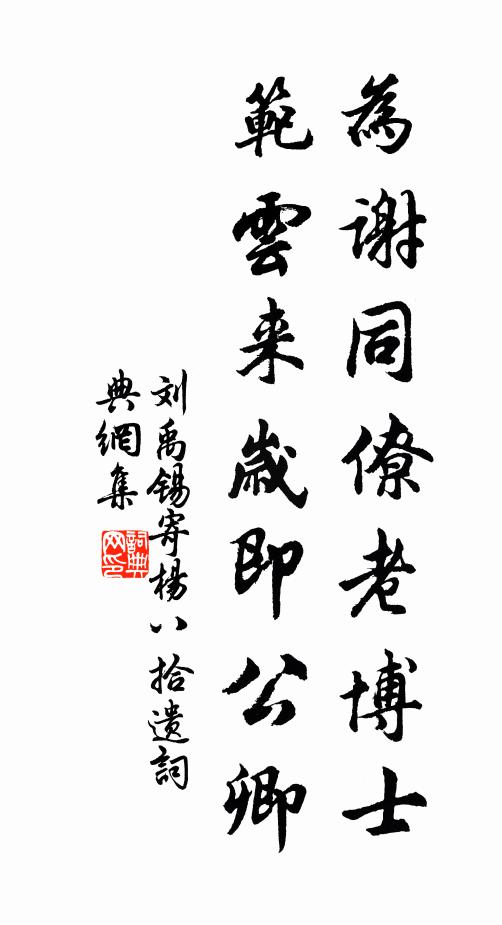 為谢同僚老博士
範雲来歲即公卿
刘禹锡寄楊八拾遺詞
典網集
詞典
网印